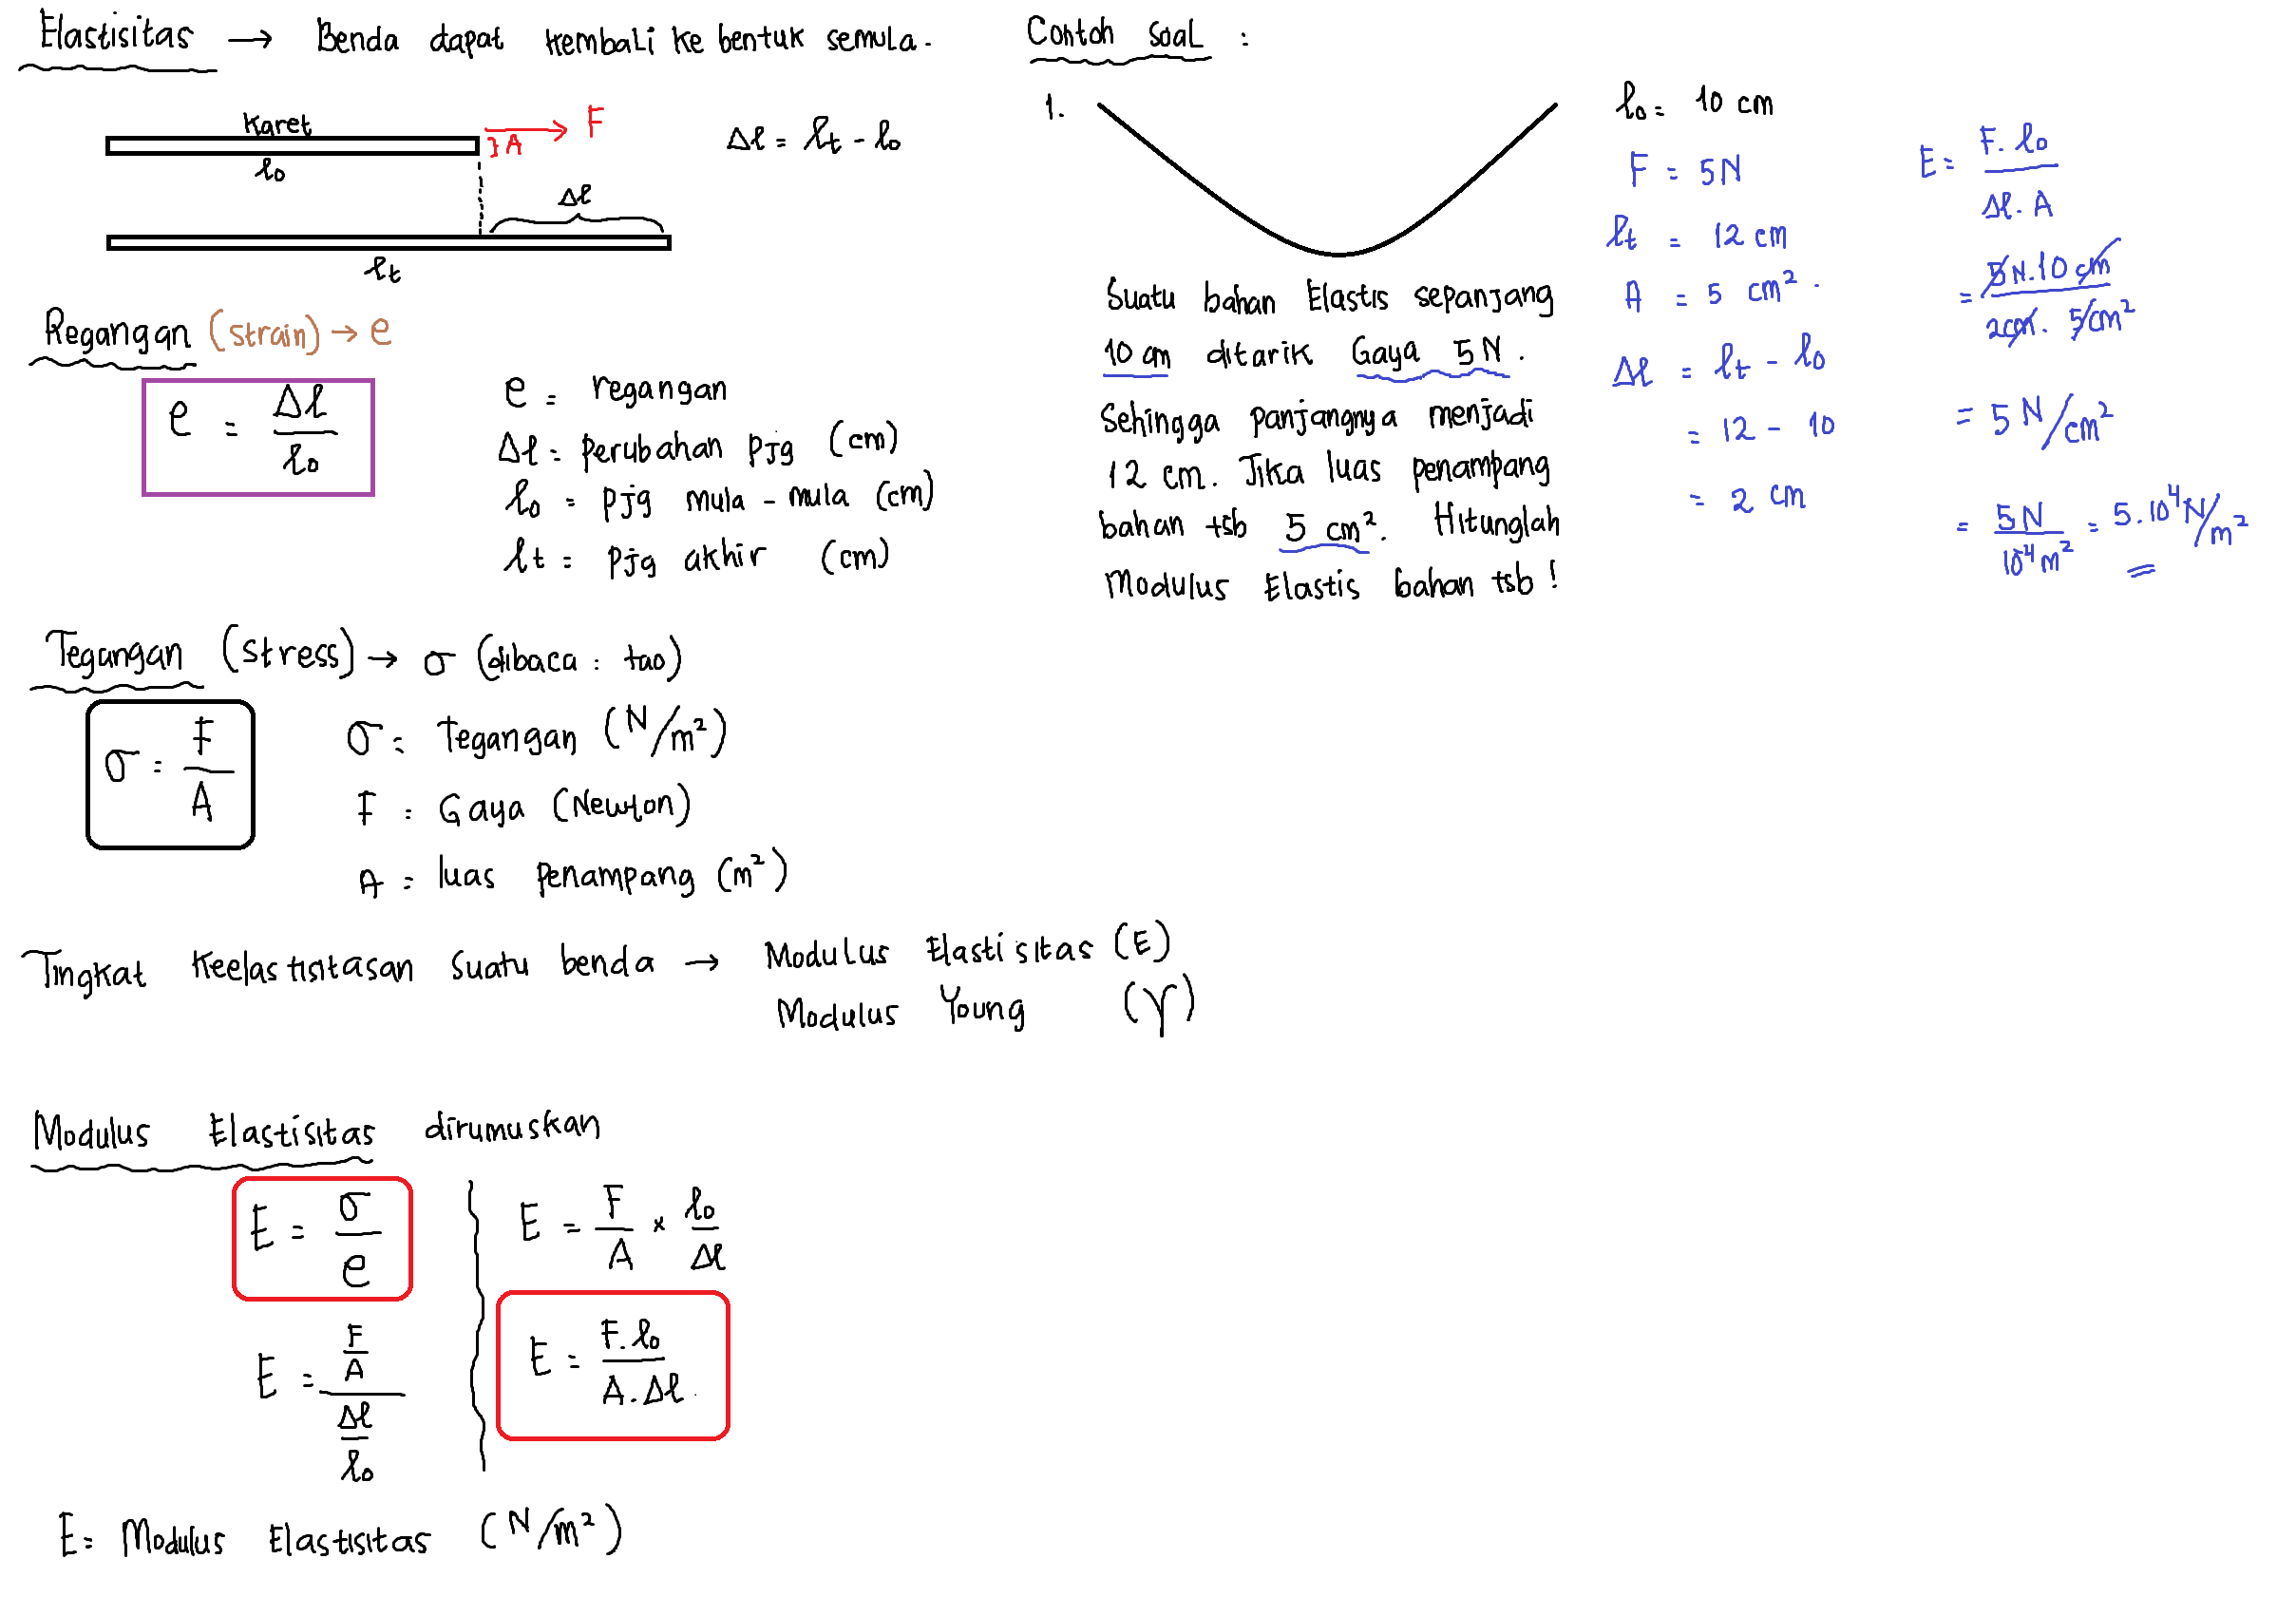 Elastisitas → Benda dapat kembali ke bentuk semula.
Karet
F
} A
l₀
Δl = lt - l₀
Δl
lt
Regangan (strain) → e
e = Δl / l₀
e = regangan
Δl = perubahan pjg (cm)
l₀ = pjg mula - mula (cm)
lt = pjg akhir (cm)
Tegangan (stress) → σ (dibaca : tao)
σ = F / A
σ = Tegangan (N/m²)
F = Gaya (Newton)
A = luas penampang (m²)
Tingkat Keelastisitasan suatu benda → Modulus Elastisitas (E)
Modulus Young (Y)
Modulus Elastisitas dirumuskan
E = σ / e
E = (F / A) / (Δl / l₀)
E = F / A × l₀ / Δl
E = F. l₀ / A. Δl.
E = Modulus Elastisitas (N/m²)
Contoh soal :
1.
Suatu bahan Elastis sepanjang
10 cm ditarik Gaya 5 N.
Sehingga panjangnya menjadi
12 cm. Jika luas penampang
bahan tsb 5 cm². Hitunglah
Modulus Elastis bahan tsb !
l₀ = 10 cm
F = 5N
lt = 12 cm
A = 5 cm².
Δl = lt - l₀
= 12 - 10
= 2 cm
E = F. l₀ / Δl. A
= 5N. 10 cm / 2cm. 5cm²
= 5 N/cm²
= 5N / 10⁻⁴ m² = 5. 10⁴ N/m²